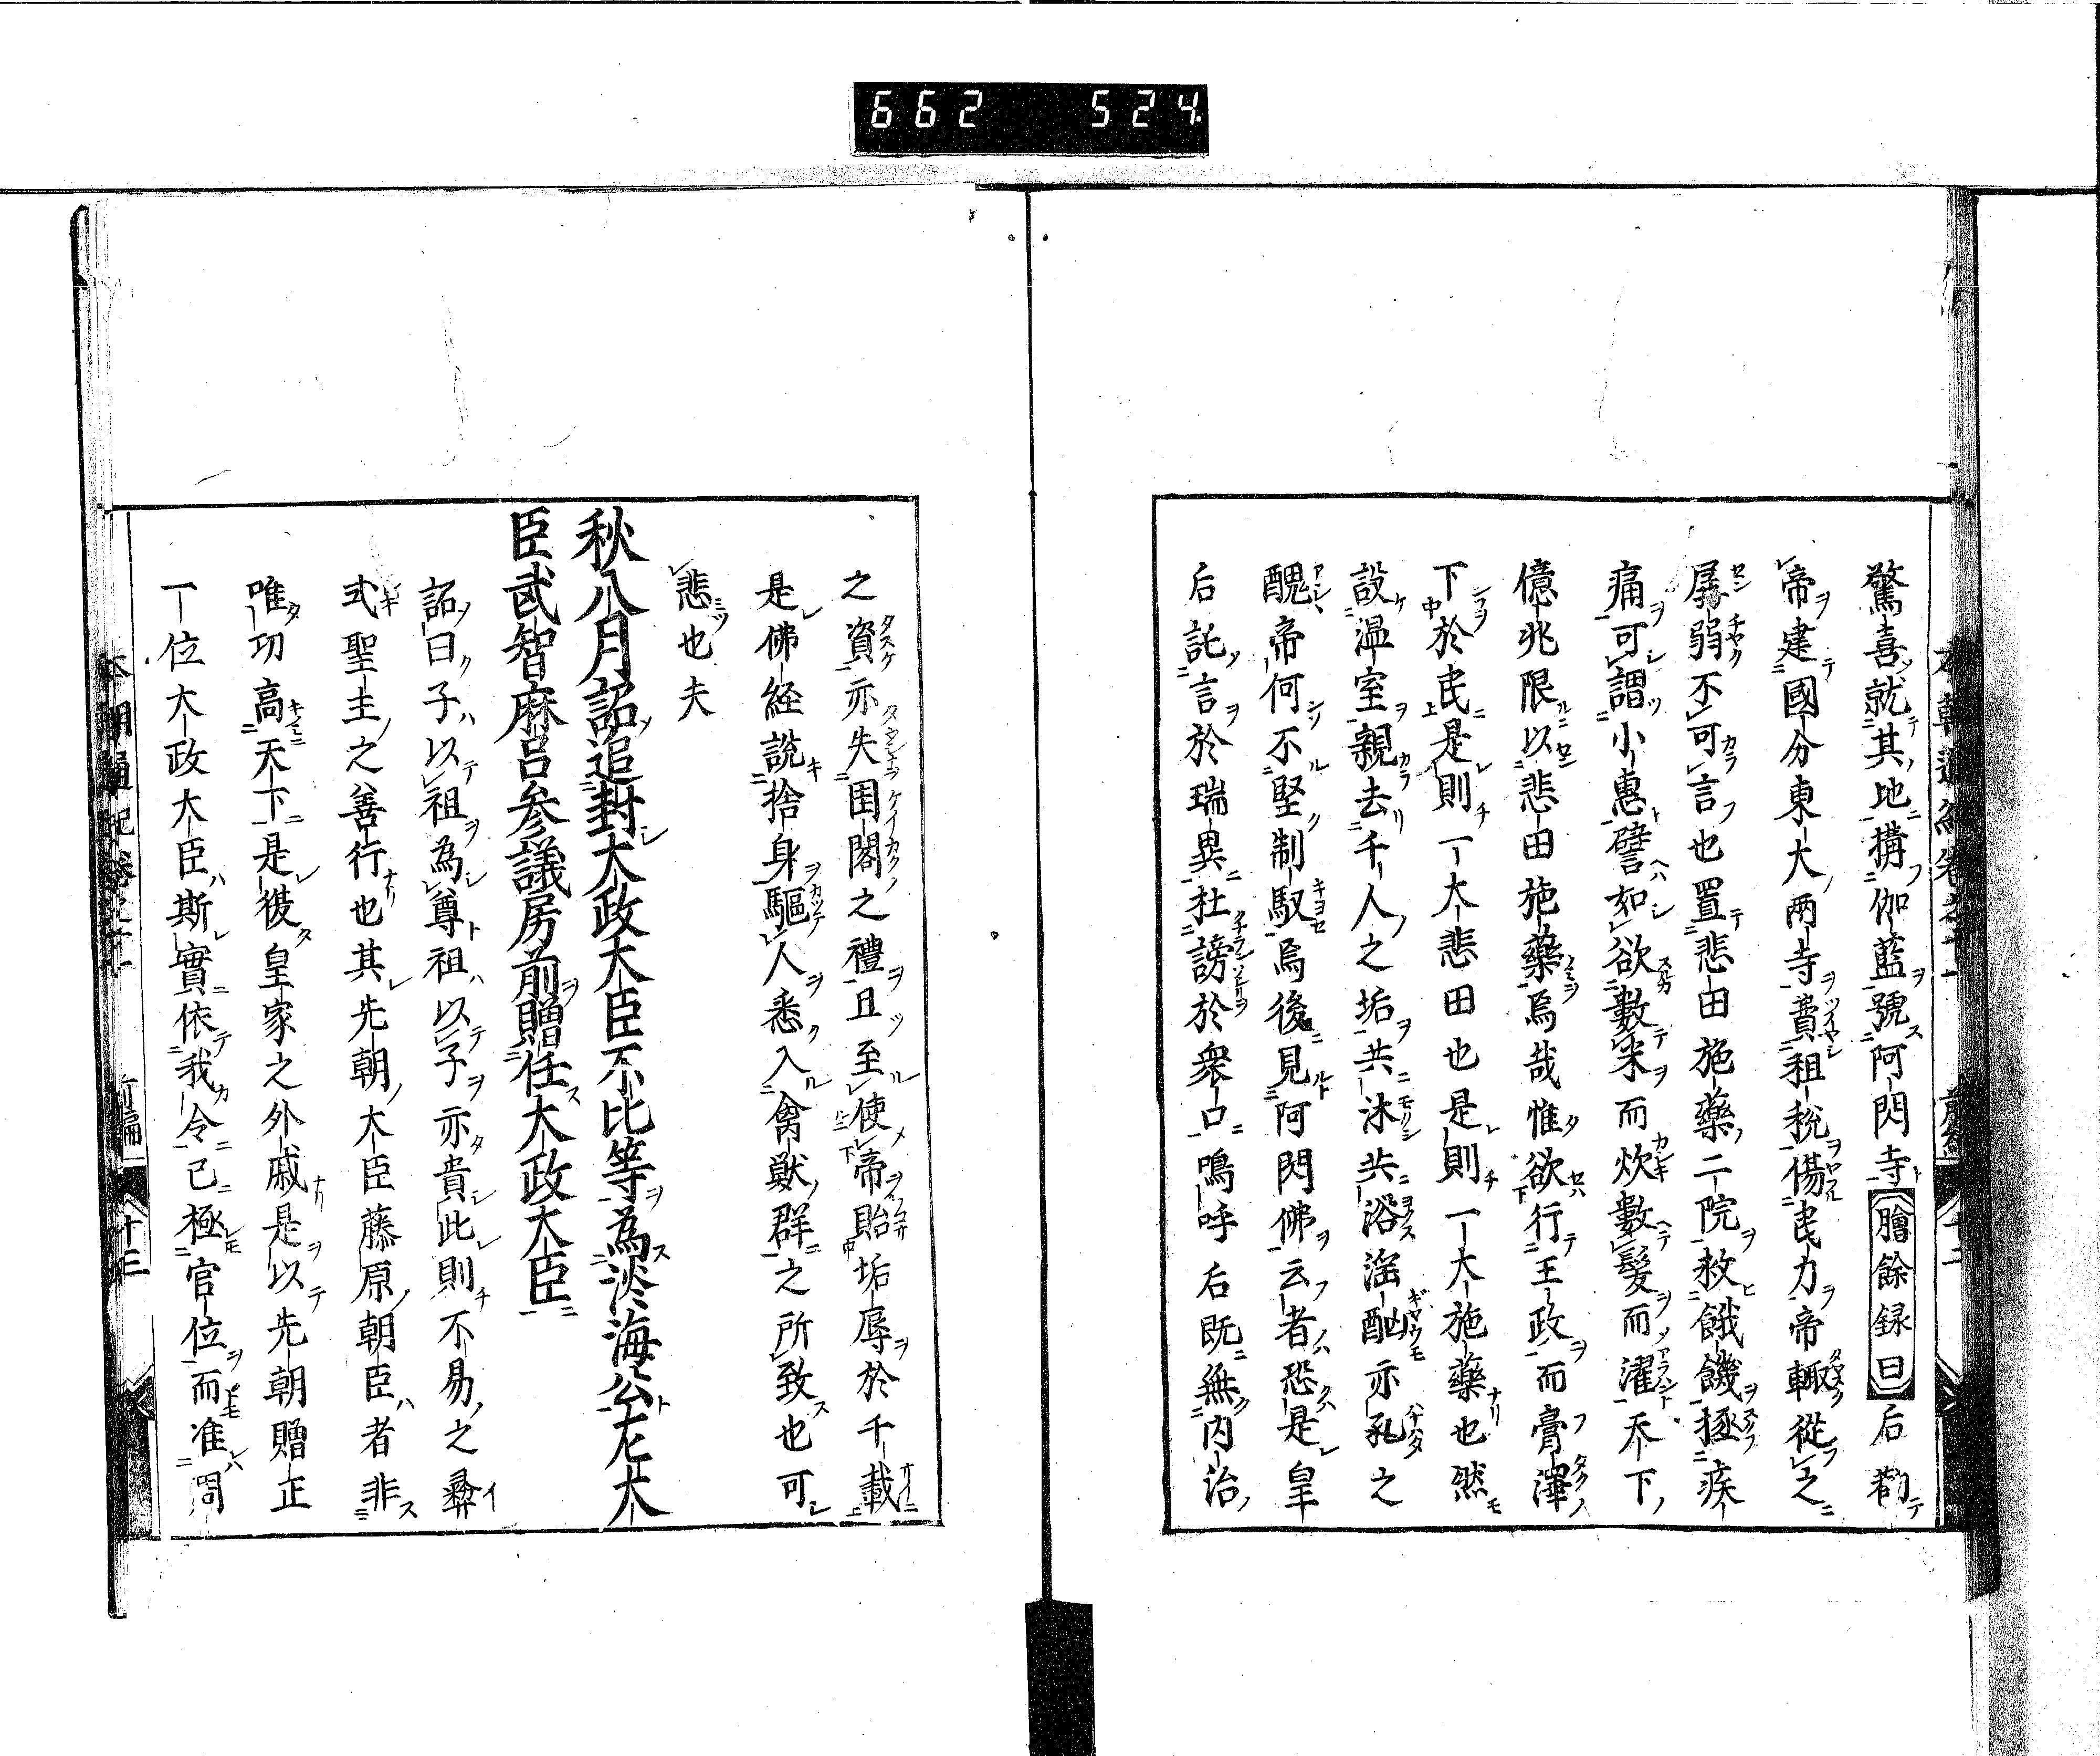 662 524
驚喜就其地搆伽藍號阿閦寺【膾餘録曰】后勸
帝建國分東大兩寺費租税傷民力帝輙從之
孱弱不可言也置悲田施藥二院救餓饑拯疾
痛可謂小惠譬如欲數米而炊數髮而濯天下
億兆限以悲田施藥焉哉惟欲行王政而膏澤
下於民是則一大悲田也是則一大施藥也然
設温室親去千人之垢共沐共浴滛酗亦乱之
醜帝何不堅制馭焉後見阿閦佛云者恐是皇
后託言於瑞異杜謗於衆口鳴呼后既無内治
之資亦失閨閤之禮且至使帝貽垢辱於千載
是佛經說捨身驅人悉入禽獣群之所致也可
悲也夫
秋八月詔追封大政大臣不比等為淡海公左大
臣武智麻呂参議房前贈任大政大臣
詔曰子以祖為尊祖以子亦貴此則不易之彛
式聖主之善行也其先朝大臣藤原朝臣者非
唯功高天下是復皇家之外戚是以先朝贈正
一位大政大臣斯實依我令已極官位而准周
本朝通紀卷之十 前編 十三